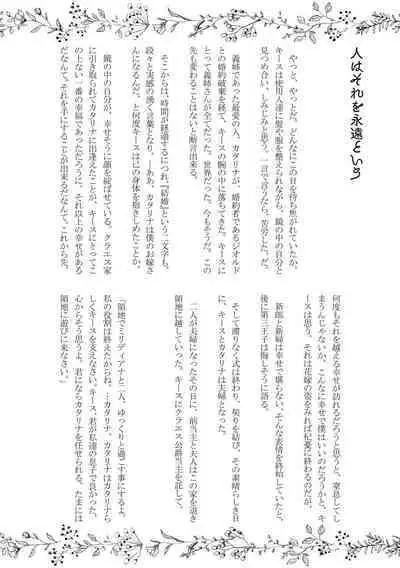 人はそれを永遠という
やっと、やっとだ。どんなにこの日を待ち焦がれていたか。
キースは使用人達に髪や服を整えられながら、鏡の中の自分と
見つめ合い、しみじみと思う。一言で言うなら、苦労した、だ。
義姉であり最愛の人、カタリナが、婚約者であるジオルド
との婚約破棄を経て、キースの腕の中に落ちてきた。キースに
とって義姉さんが全てだった。世界だった。今もそうだ。この
先も変わることはないと断言出来る。
そこからは、時間が経過するにつれ、『結婚』という二文字も、
段々と実感の湧く言葉となり、――ああ、カタリナは僕のお嫁さ
んになるんだ、と何度キースはにの身体を抱きしめたことか。
鏡の中の自分が、幸せそうに顔を綻ばせている。クラエス家
に引き取られてカタリナに出逢えたことが、キースにとってこ
の上ない一番の幸福であっただろうに、それ以上の幸せがある
だなんて。それを手にすることが出来るだなんて。これから先、
何度もそれを越える幸せが訪れるだろうと思うと、窒息してし
まうんじゃないか、こんなに幸せで僕はいいのだろうかと、キ
ースは思う。それは花嫁の姿をみれば杞憂に終わるのだが。
新郎と新婦は幸せで堪らない、そんな表情を終始していたと、
後に第三王子は悔しそうに語る。
そして滞りなく式は終わり、契りを結び、その素晴らしき日
に、キースとカタリナは夫婦となった。
二人が夫婦になったその日に、前当主と夫人はこの家を退き
領地に越していった。キースにクラエス公爵当主を託して。
「領地でミリディアナと二人、ゆっくりと過ごす事にするよ。
私の役割は終えたからね。…カタリナ、カタリナはカタリナら
しくキースを支えなさい。キース、君が私達の息子で良かった。
心からそう思うよ。君にならカタリナを任せられる。たまには
領地に遊びに来なさい。」